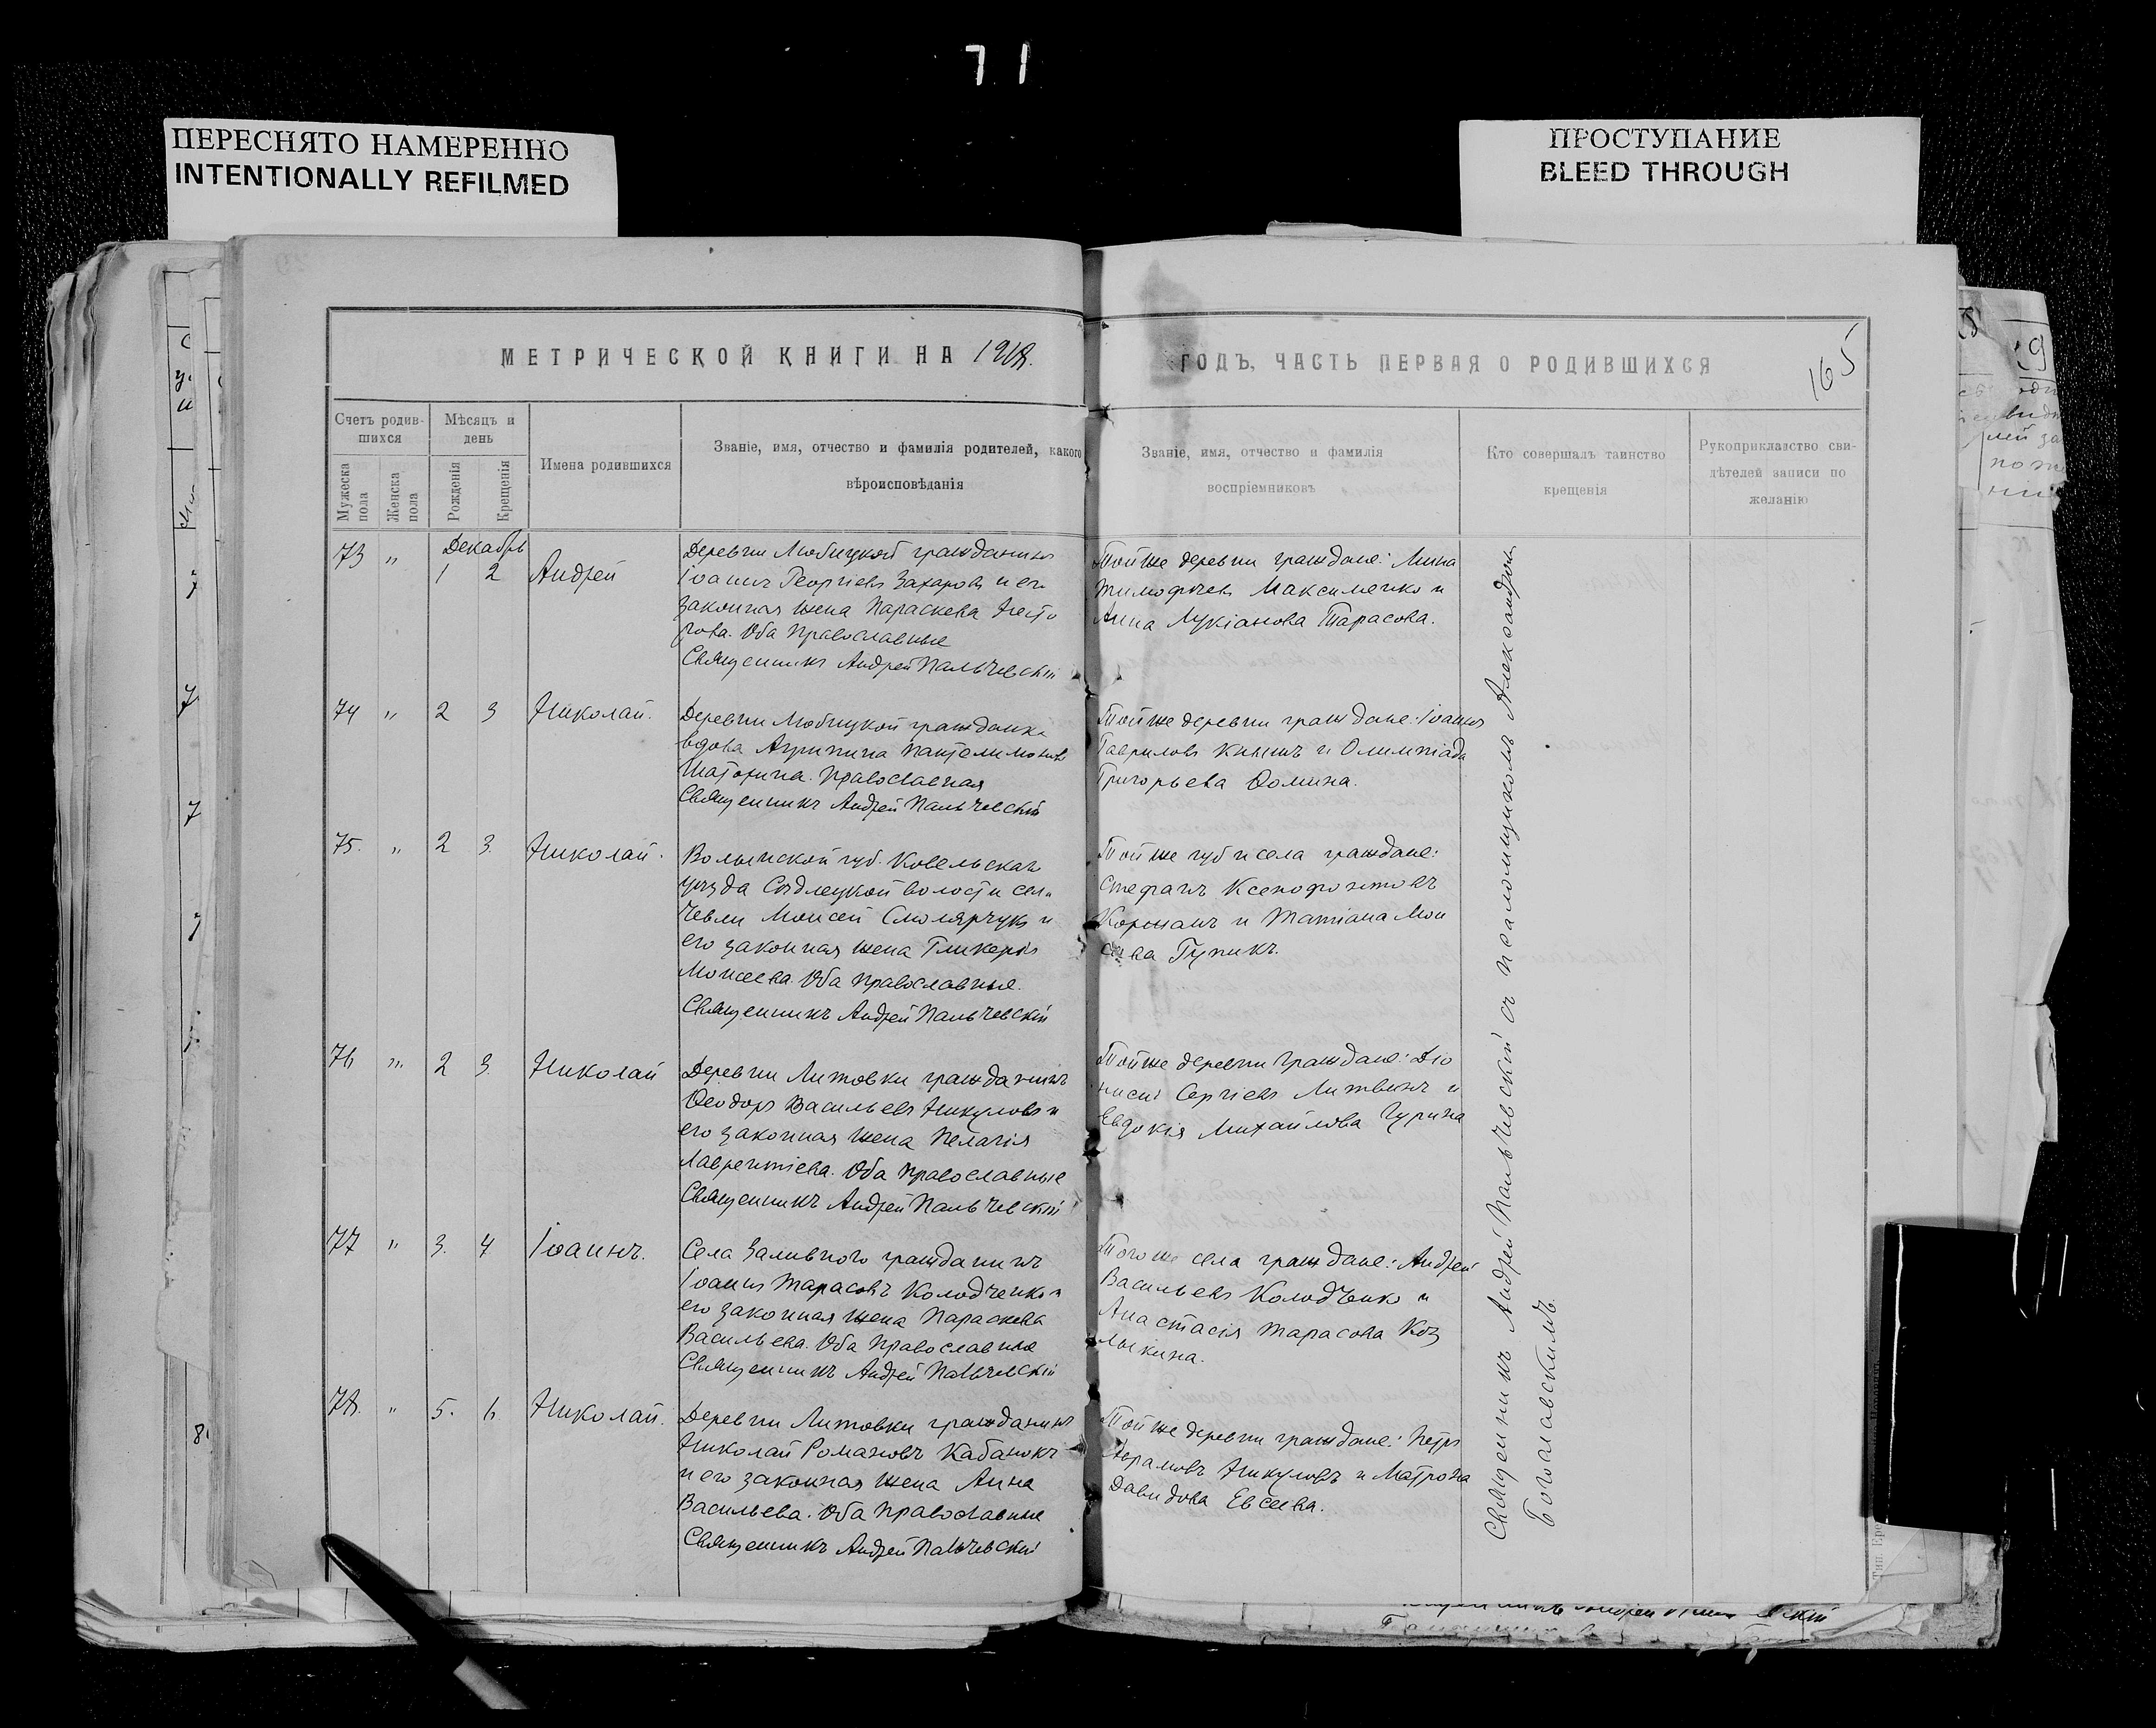 71
ПЕРЕСНЯТО НАМЕРЕННО
INTENTIONALLY REFILMED
ПРОСТУПАНИЕ
BLEED THROUGH
МЕТРИЧЕСКОЙ КНИГИ НА 1918.
ГОДЪ, ЧАСТЬ ПЕРВАЯ О РОДИВШИХСЯ
165
Счетъ родив-
шихся
Мѣсяцъ и
день
Мужеска
пола
Женска
пола
Рожденія
Крещенія
Имена родившихся
Званіе, имя, отчество и фамилія родителей, какого
вѣроисповѣданія
Званіе, имя, отчество и фамилія
воспріемниковъ
Кто совершалъ таинство
крещенія
Рукоприкладство сви-
дѣтелей записи по
желанію
Декабрь
73 " 1 2 Андрей
Деревни Любицкой гражданинъ
Іоаннъ Георгіевъ Захаровъ и его
законная жена Параскева Несто
рова. Оба православные
Священникъ Андрей Пальчевскій
Той же деревни граждане: Мина
Тимофеевъ Максименко и
Анна Лукіанова Тарасова.
74 " 2 3 Николай.
Деревни Любицкой гражданка
вдова Агрипина Пантелимонова
Православная
Священникъ Андрей Пальчевскій
Той же деревни граждане: Іоаннъ
Гавриловъ Книшъ и Олимпіада
Григорьева Ѳомина.
75. " 2 3. Николай.
Волынской губ. Ковельскаго
уѣзда Сѣдлецкой волости села
Чевли Моисей Смолярчукъ и
его законная жена Гликерія
Моисеева. Оба православные.
Священникъ Андрей Пальчевскій
Той же губ и села граждане:
Стефанъ Ксенофонтовъ
Корманъ и Татіана Мои
сеева Гупикъ.
76 " 2 3. Николай
Деревни Литовки гражданинъ
Ѳеодоръ Васильевъ Никуловъ и
его законная жена Пелагія
Лаврентіева. Оба православные
Священникъ Андрей Пальчевскій
Той же деревни граждане: Діо
нисій Сергіевъ Литвинъ и
Евдокія Михайлова Гурина
77 " 3. 4 Іоаннъ.
Села Заливного гражданинъ
Іоаннъ Тарасовъ Колодченко и
его законная жена Параскева
Васильева. Оба православные
Священникъ Андрей Пальчевскій
Того же села граждане: Андрей
Васильевъ Колодченко и
Анастасія Тарасова Коз
лыкина.
78. " 5. 6. Николай.
Деревни Литовки гражданинъ
Николай Романовъ Кабанокъ
и его законная жена Анна
Васильева. Оба православные
Священникъ Андрей Пальчевскій
Той же деревни граждане: Петръ
Абрамовъ Никуловъ и Матрона
Давидова Евсеева.
Священникъ Андрей Пальчевскій съ псаломщикомъ Александромъ
Богославскимъ.